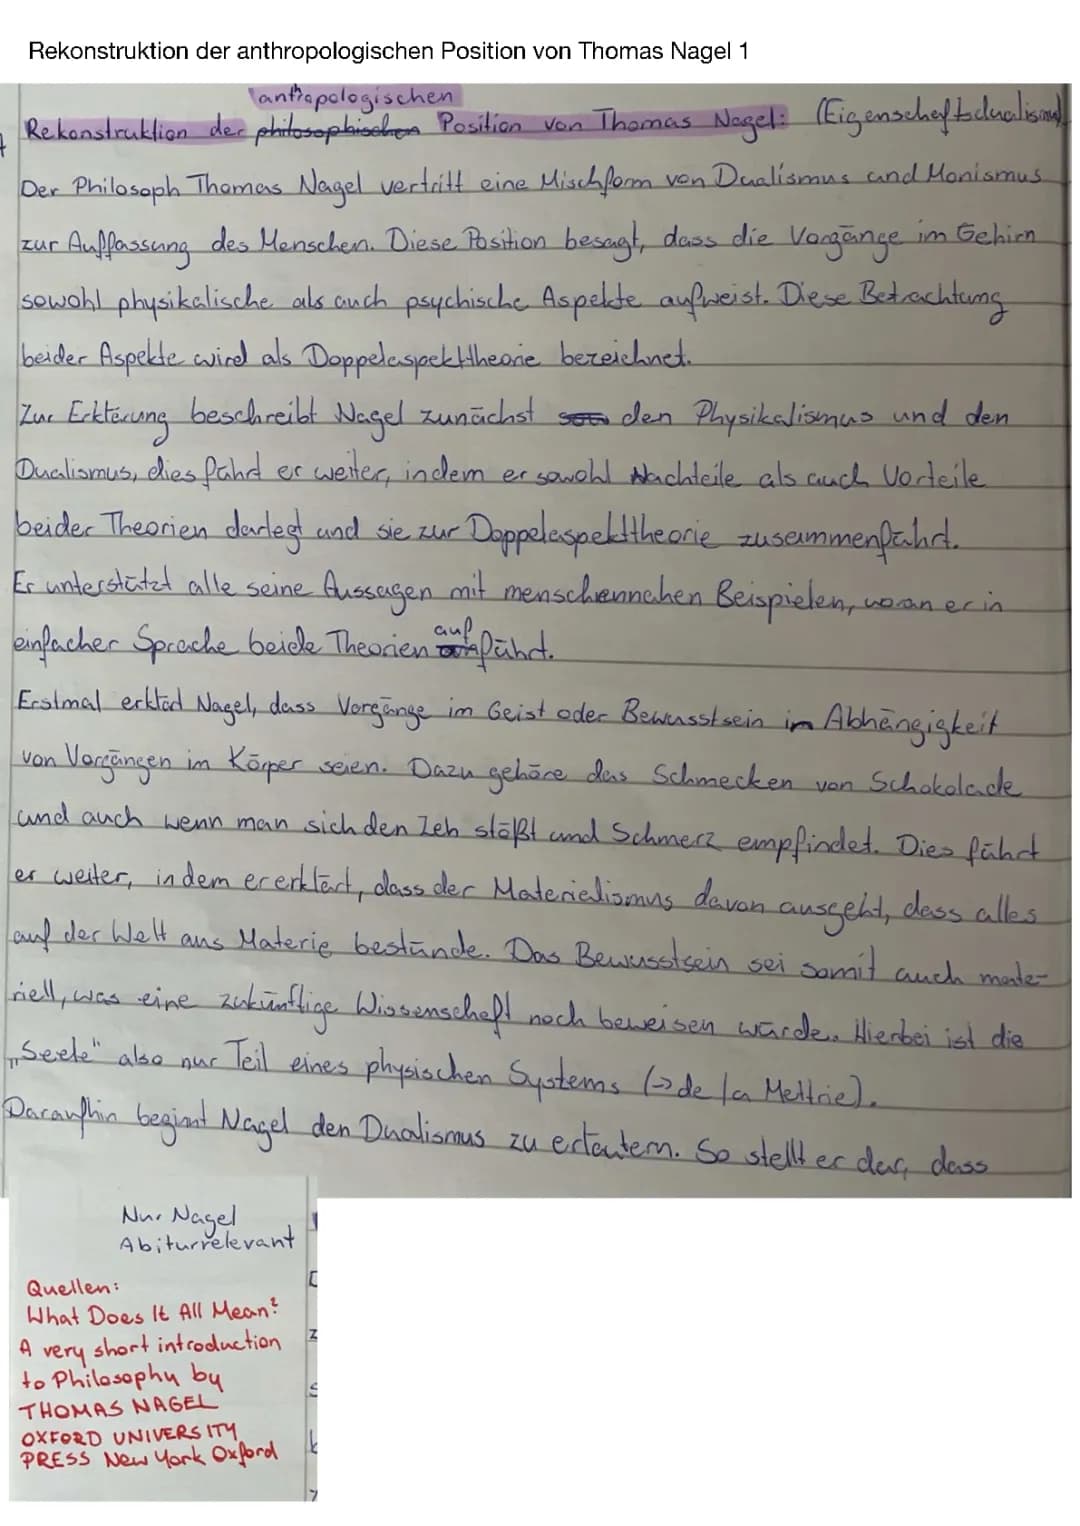 Rekonstruktion der anthropologischen Position von Thomas Nagel 1
anthropologischen
Rekonstruktion der philosophischen Position von Thomas Nagel: (Eigenschaftsdualismus)
Der Philosoph Thomas Nagel vertritt eine Mischform von Dualismus und Monismus
zur Auffassung des Menschen. Diese Position besagt, dass die Vorgänge im Gehirn
sowohl physikalische als auch psychische Aspekte aufweist. Diese Betrachtung
beider Aspekte wird als Doppelaspekttheorie bezeichnet.
Zur Erklärung beschreibt Nagel zunächst den Physikalismus und den
Dualismus, dies führt er weiter, indem er sowohl Nachteile als auch Vorteile
beider Theorien darlegt und sie zur Doppelaspekttheorie zusammenführt.
Er unterstützt alle seine Aussagen mit menschennahen Beispielen, woran er in
einfacher Sprache beide Theorien aufführt.
Erstmal erklärt Nagel, dass Vorgänge im Geist oder Bewusstsein in Abhängigkeit
von Vorgängen im Körper seien. Dazu gehöre das Schmecken von Schokolade
und auch wenn man sich den Zeh stößt und Schmerz empfindet. Dies führt
er weiter, indem er erklärt, dass der Materialismus davon ausgeht, dass alles
auf der Welt aus Materie bestünde. Das Bewusstsein sei somit auch mate-
riell, was eine zukünftige Wissenschaft noch beweisen würde. Hierbei ist die
„Seele" also nur Teil eines physischen Systems (→ de la Mettrie).
Daraufhin beginnt Nagel den Dualismus zu erläutern. So stellt er dar, dass
Nur Nagel
Abiturrelevant
Quellen:
What Does It All Mean?
A very short introduction
to Philosophy by
THOMAS NAGEL
OXFORD UNIVERSITY
PRESS New York Oxford